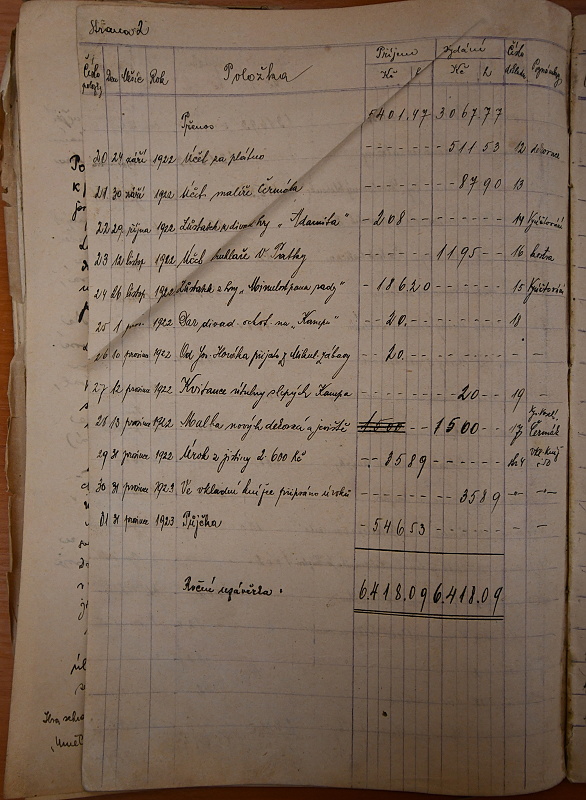 Strana 2
Číslo polož. Den Měsíc Rok Položka Příjem Kč h Vydání Kč h Číslo dokladu Poznámky
Přenos 5401.47 3067.77
20 24 září 1922 Účet za plátno 511 53 12
21 30 září 1922 Účet malíře Čermáka 87 90 13
22 29 října 1922 Zůstatek z divad. hry „Adamita" 208 14 Vyúčtování
23 12 listop 1922 Účet truhláře V. 1195 16
24 26 listop 1922 Zůstatek z hry „ pana rady" 186 20 15 Vyúčtování
25 1 pros. 1922 Dar divad. ochot. na „Kampu" 20. 18
26 10 prosince 1922 Od Jos. přijato z Mikul. zábavy 20. - -
27 12 prosince 1922 Kvitance útulny slepých Kampa 20 19 -
28 13 prosince 1922 Malba nových dekorací a jeviště 1500 1500 17 Čermák
29 31 prosince 1922 Úrok z jistiny 2.600 Kč 35 89
30 31 prosince 1923 Ve vkladní knížce připsáno úroků 35 89 - -
31 31 prosince 1923 Půjčka 546 53 - -
Roční uzávěrka. 6.418.09 6.418.09